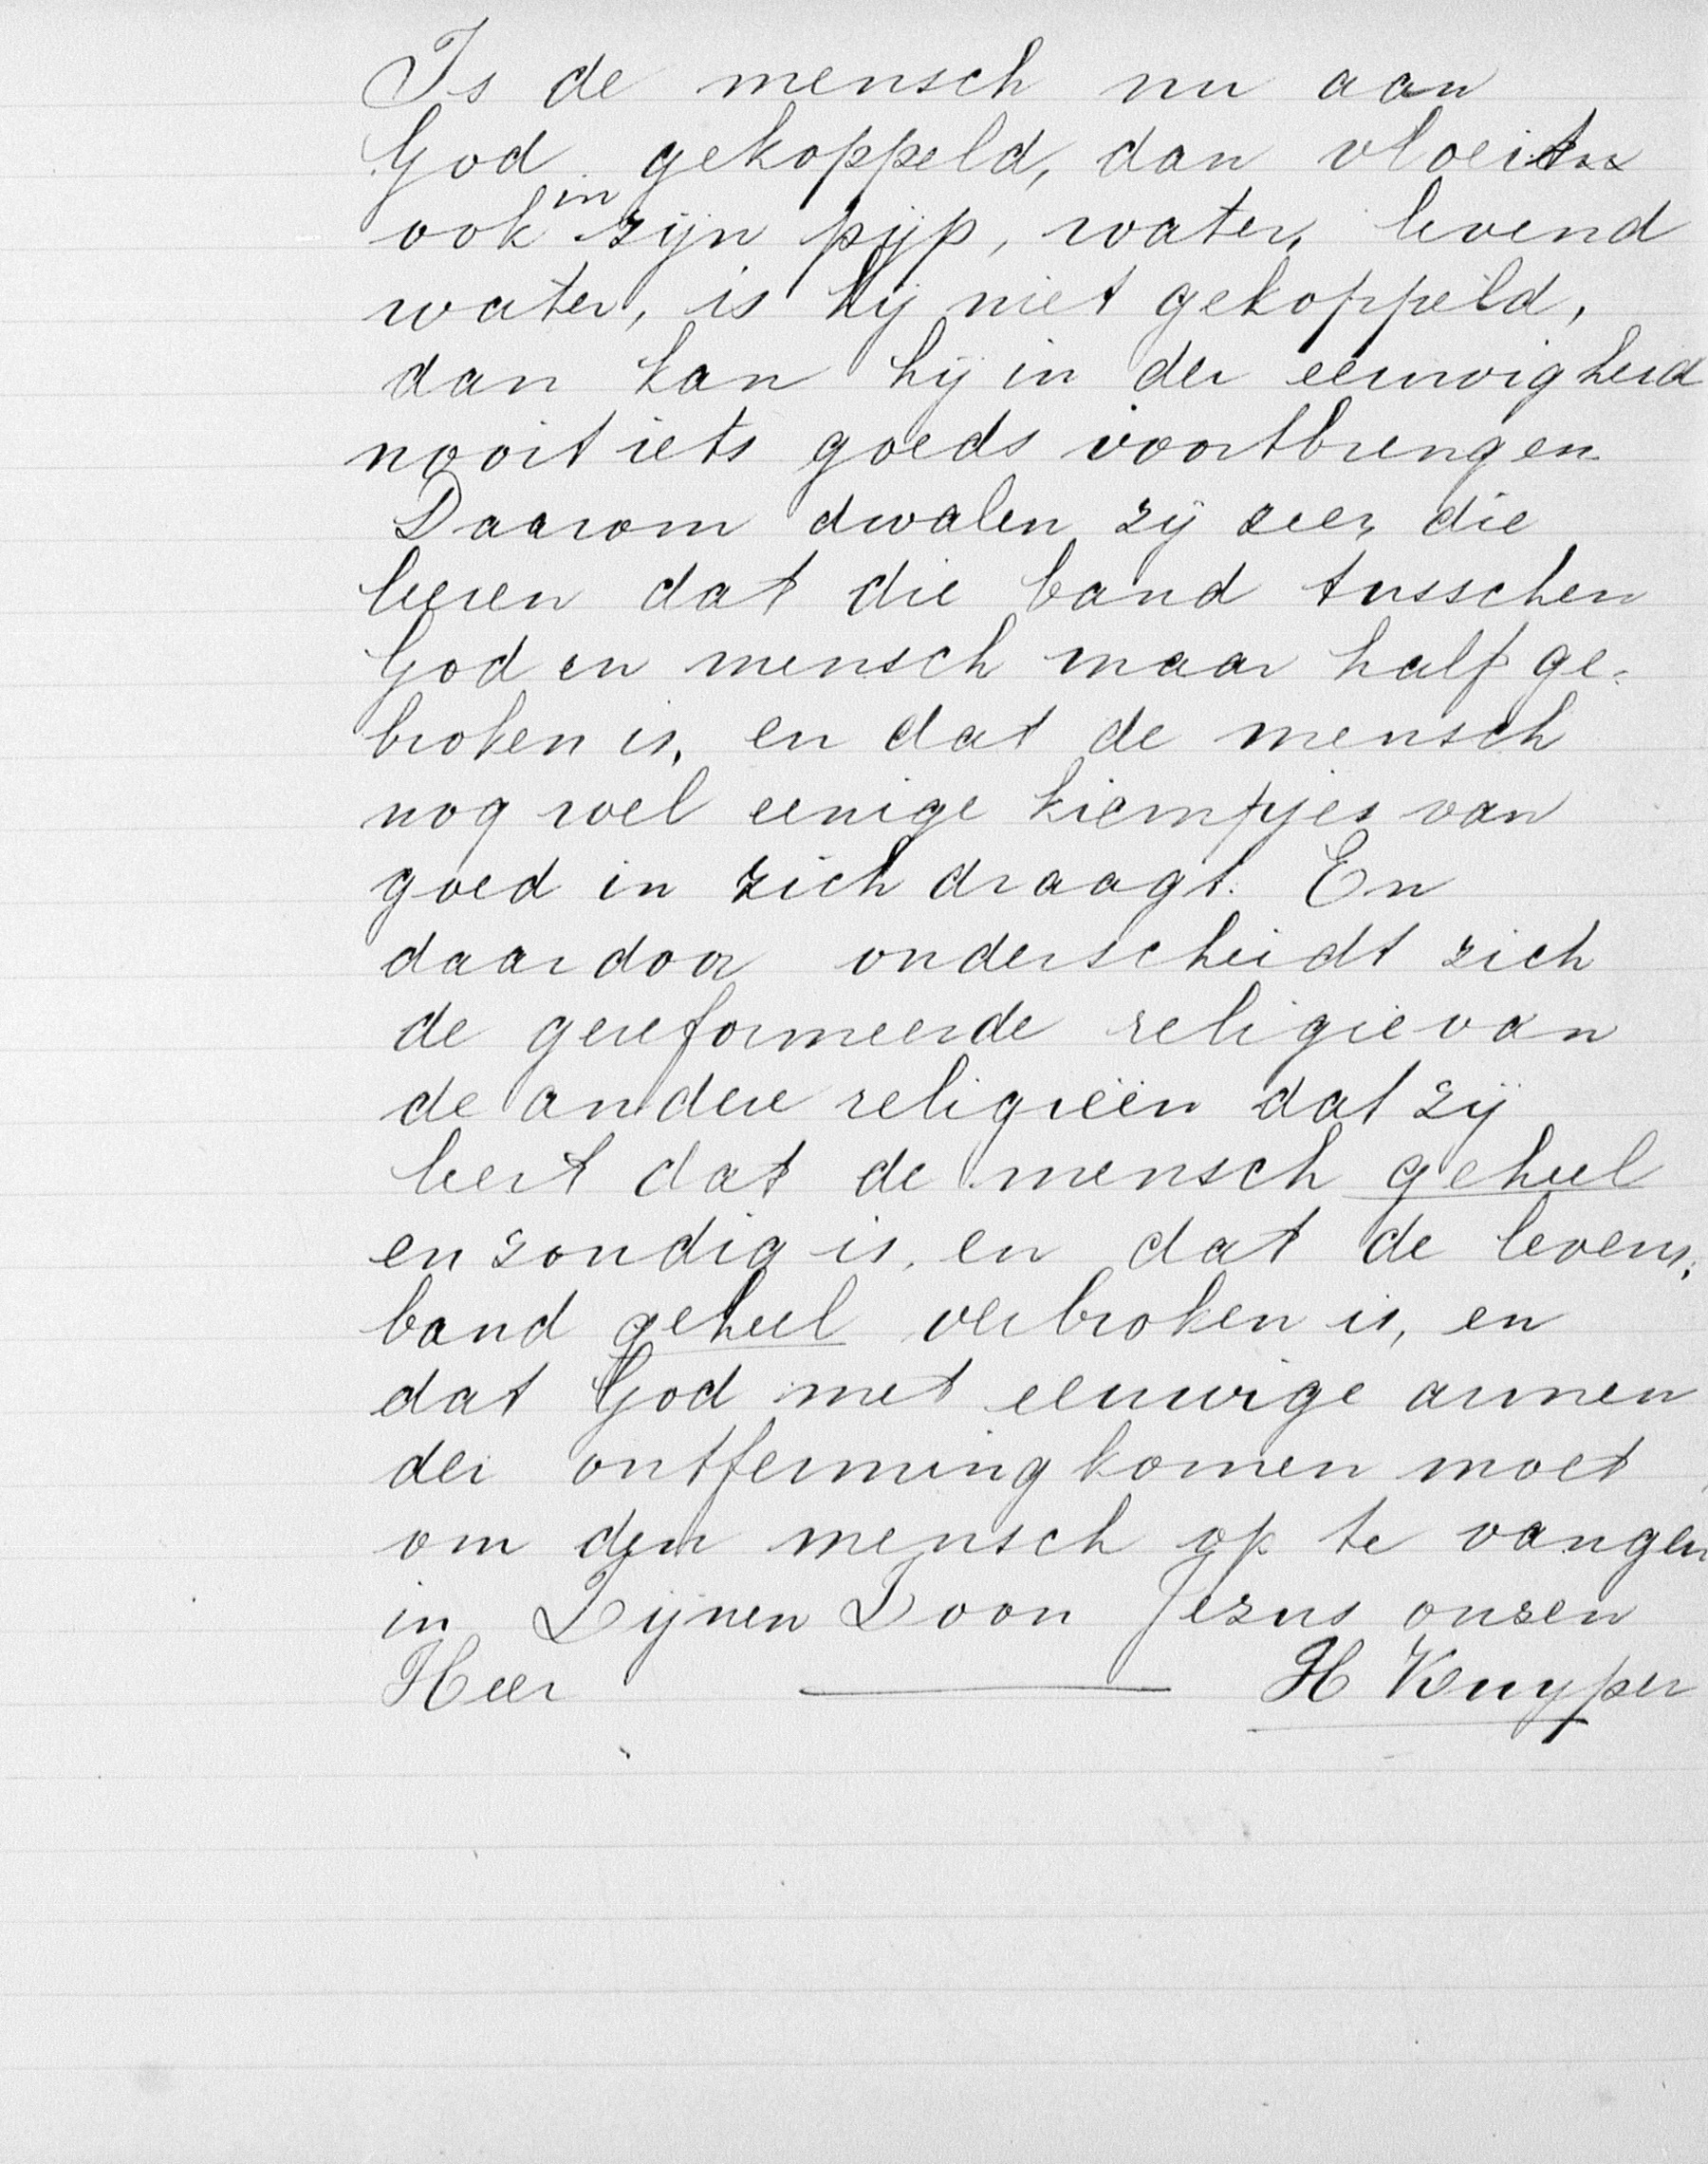 Is de mensch nu aan
God gekoppeld, dan vloeit
ook in zijn pijp, water, levend
water, is hij niet gekoppeld,
dan kan hij in der eeuwigheid
nooit iets goeds voortbrengen.
Daarom dwalen zij zeer, die
leeren dat die band tusschen
God en mensch maar half ge-
broken is, en dat de mensch
nog wel eenige kiempjes van
goed in zich draagt. En
daardoor onderscheidt zich
de gereformeerde religie van
de andere religieën dat zij
leert dat de mensch geheel
en zondig is, en dat de levens-
band geheel verbroken is, en
dat God met eeuwige armen
der ontferming komen moet,
om den mensch op te vangen
in Zijnen Zoon Jezus onzen
Heer H Kuyper